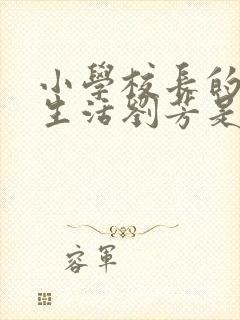 小學校長的
生活劉芳是
容軍